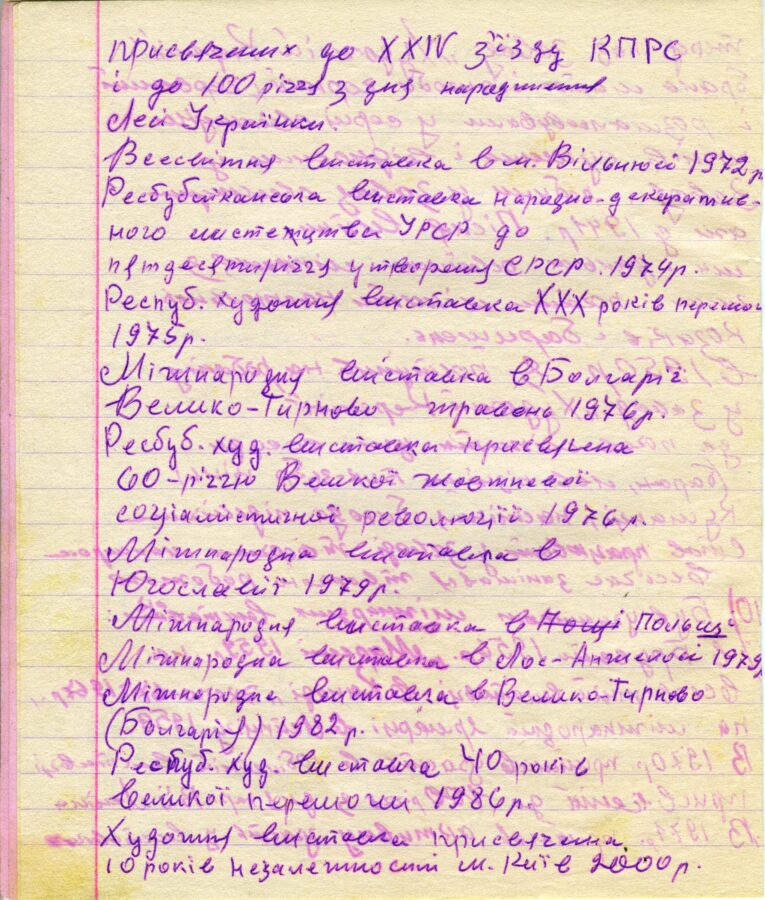 присвячених до XXIV з'їзду КПРС
і до 100 річчя з дня народження
Лесі Українки.
Всесвітня виставка в м. Вільнюсі 1972 р
Ресбубліканська виставка народно-декоратив-
ного мистецтва УРСР до
пятдесятиріччя утворення СРСР. 1974р.
Респуб. художня виставка XXX років перемоги
1975р.
Міжнародня виставка в Болгарії
Велико-Тирново травень 1976р.
Ресбуб. худ. виставка присвячена
60-річчю Великої жовтневої
соціалистичної революції 1976 р.
Міжнародна виставка в
Югославії 1979р.
Міжнародня виставка в Пощі Польщі
Міжнародна виставка в Лос-Анжелосі 1979р
Міжнародна виставка в Велико-Тирново
(Болгарія) 1982 р.
Респуб. худ. виставка 40 років
великої перемоги 1986р.
Художня виставка присвячена
10 років незалежності м. Київ 2000 р.